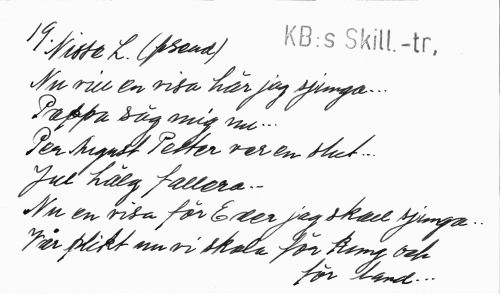 19. Nisse L. (pseud)
KB:s Skill.-tr,
Nu vill en visa här jag sjunga...
Pappa säg mig nu...
Per August Petter var en slut...
Jul hälg fallera..
Nu en visa för Eder jag skall sjunga..
Vår plikt nu vi skola för Kung och
för land...